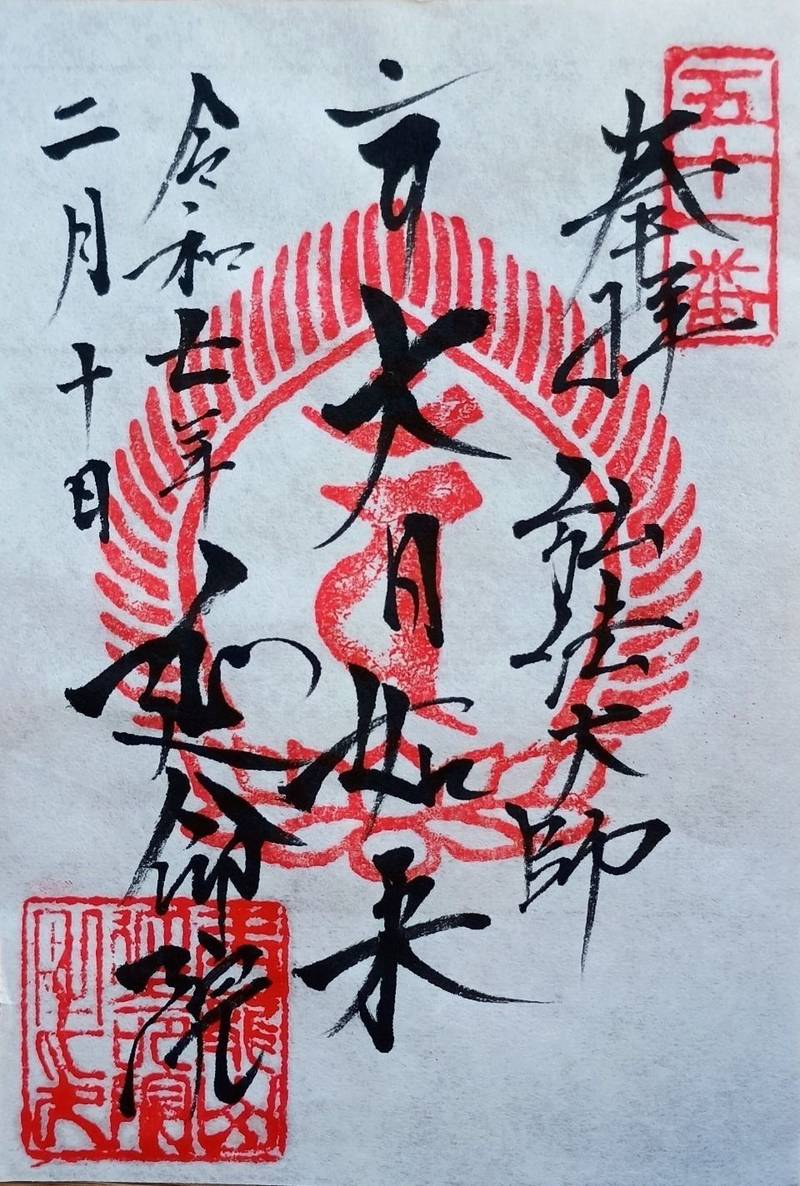 五十一番
奉拝
弘法大師
大日如来
延命院
令和七年
二月十日